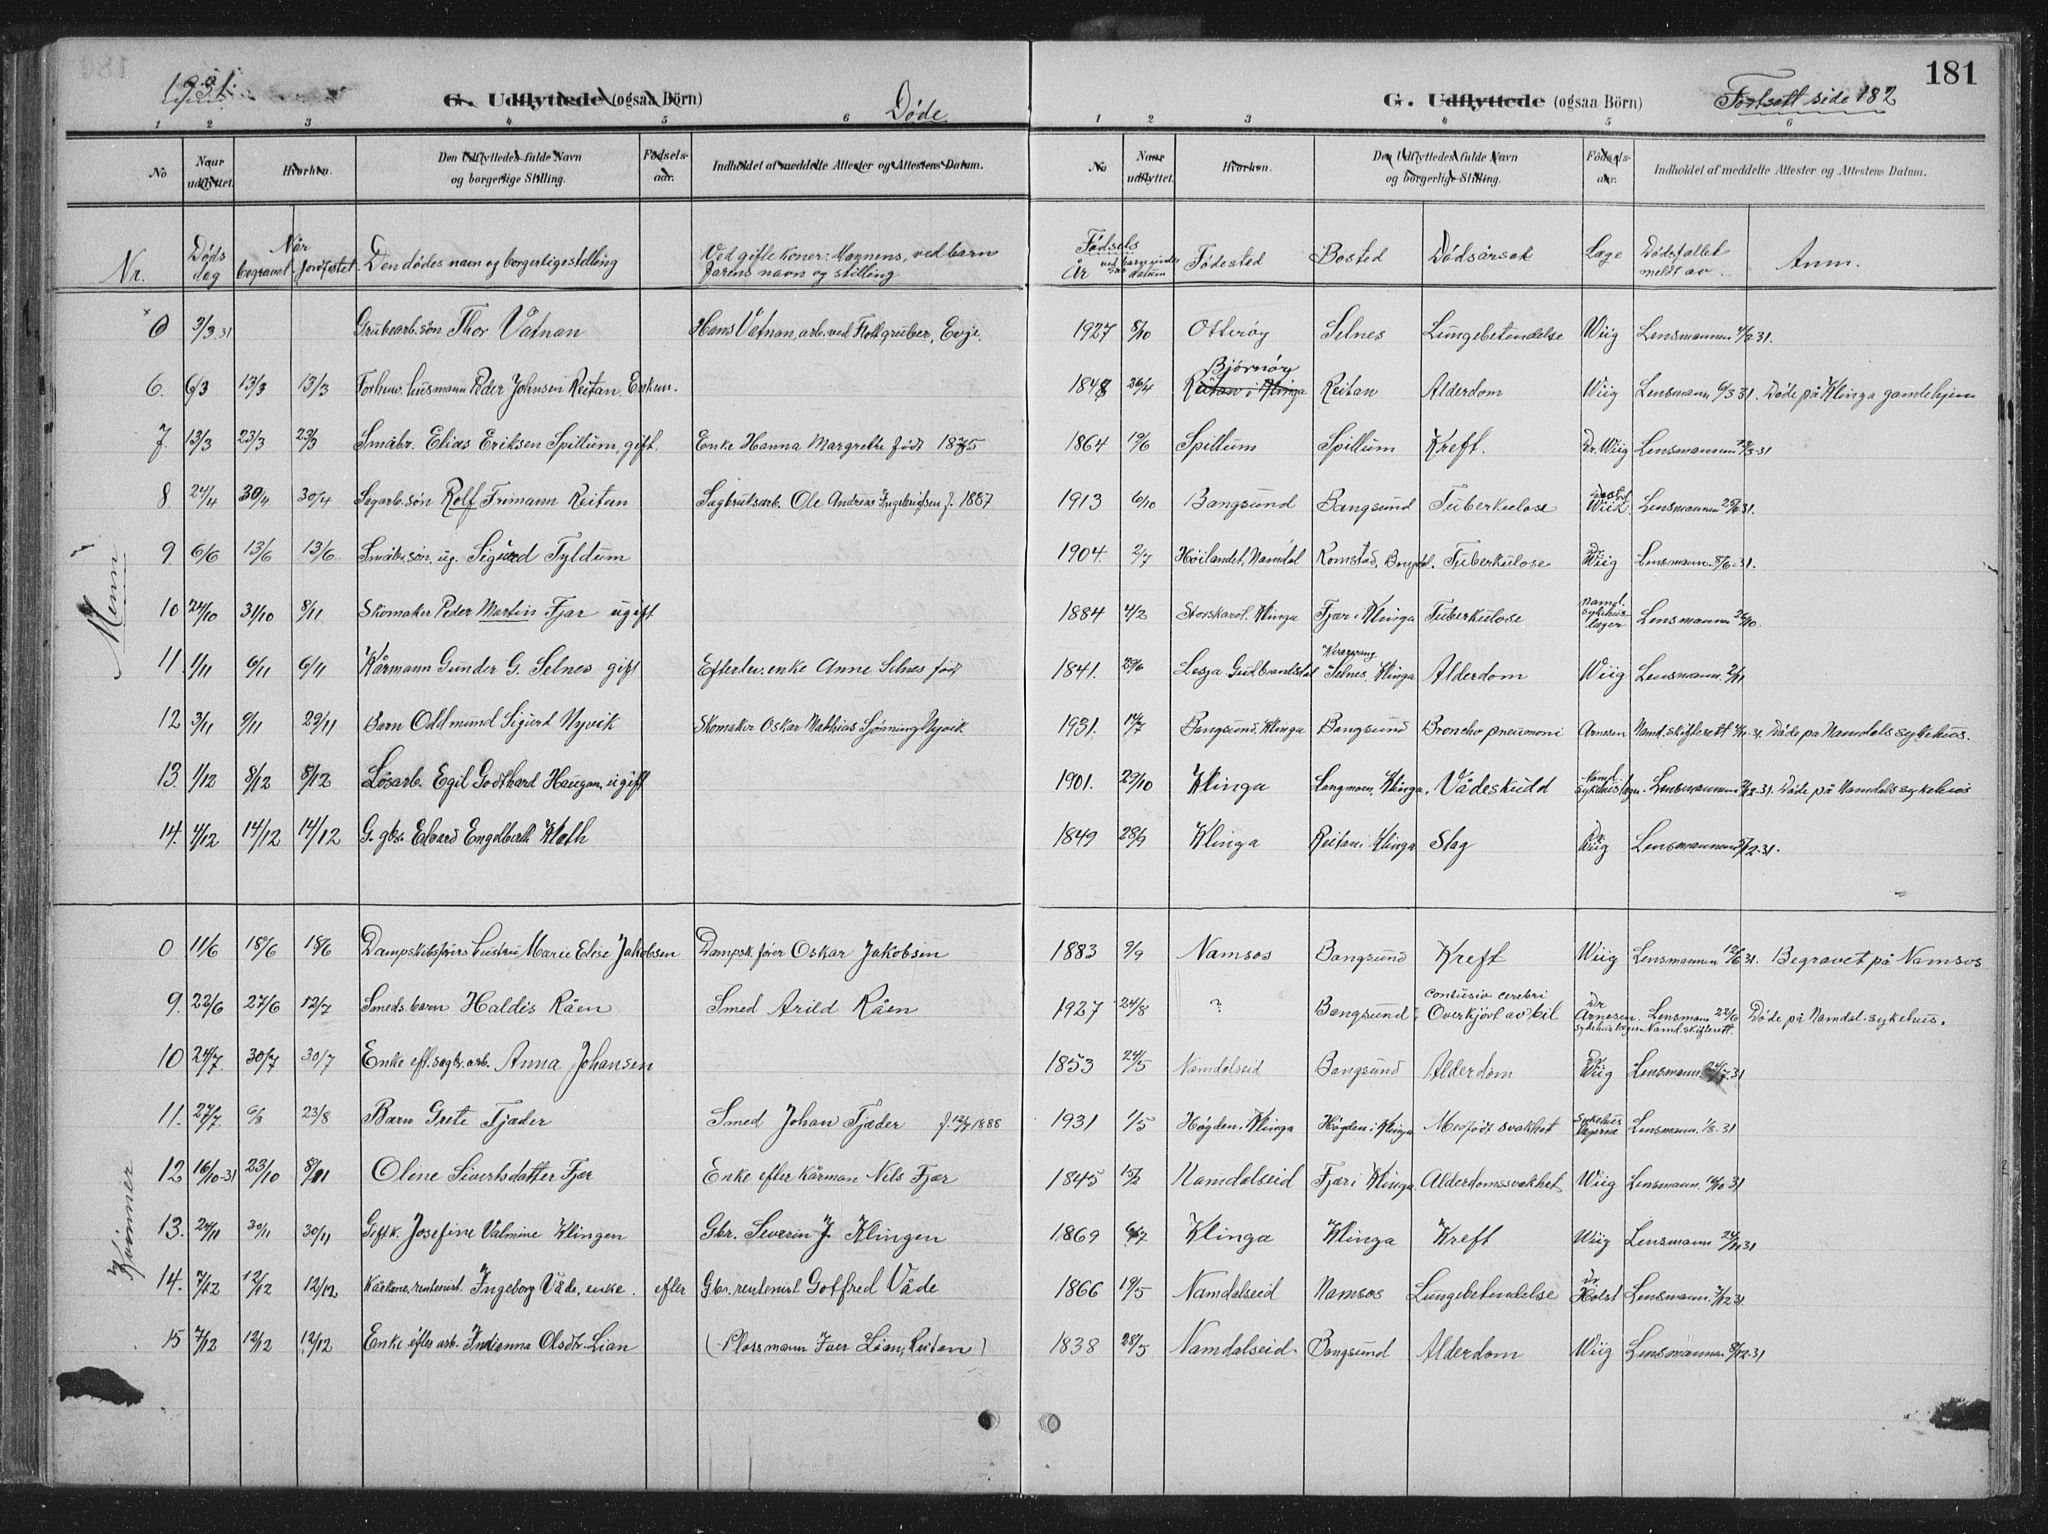 1931.
G. Udflyttede (ogsaa Börn)
Døde
1 2 3 4 5 6
No
Naar udflyttet.
Hvorhen.
Den Udflyttedes fulde Navn og borgerlige Stilling.
Födsels-aar.
Indholdet af meddelte Attester og Attestens Datum.
Nr.
Døds dag
Når
begravet
jordfestet
Den dødes navn og borgerlige stilling
Ved gifte koner: Mannens, ved barn farens navn og stilling
181
G. Udflyttede (ogsaa Börn)
Fortsett side 182
1 2 3 4 5 6
No
Naar udflyttet.
Hvorhen.
Den Udflyttedes fulde Navn og borgerlige Stilling.
Födsels-aar.
Indholdet af meddelte Attester og Attestens Datum.
Fødsels År datum
Fødested
Bosted
Dødsårsak
Læge
Dødsfallet meldt av
Anm.
Menn
0 3/3 31 Grubearb. søn Thor Vatnan Hans Vatnan, arb. ved Flott gruber, Evje. 1927 8/10 Otterøy Selnes Lungebetendelse Wiig Lensmannen 4/3 31.
6. 6/3 13/3 13/3 Forhenv. husmann Peder Johnsen Reitan Enkem. 1848 26/4 Bjørnøy Reitan i Klinga Reitan Alderdom Wiig Lensmann 6/3 31. Døde på Klinga gamlehjem
7. 13/3 23/3 23/3 Småbr. Elias Eriksen Spillum, gift. Enke Hanna Margrethe født 1875 1864 19/6 Spillum Spillum Kreft. Dr. Wiig Lensmannen 13/3 31
8. 24/4 30/4 30/4 Sagarb. søn Rolf Frimann Reitan Sagbruksarb. Ole Andreas Ingebrigtsen f. 1887 1913 6/10 Bangsund Bangsund Tuberkulose Wiik Lensmannen 25/4 31.
9. 6/6 13/6 13/6 Småbr. søn, ug. Sigurd Tyldum 1904. 2/7 Høilandet, Namdal Romstad, Bangsd. Tuberkulose Dr. Wiig Lensmann. 8/6-31.
10 24/10 31/10 8/11 Skomaker Peder Martin Fjær ugift 1884 4/2 Storskarvl. Klinga Fjær i Klinga Tuberkulose Namd. sykehus læger Lensmannen 26/10.
11 1/11 6/11 6/11 Kårmann Gunder G. Selnes gift Efterlev. enke Anne Selnes født 1841. 29/6 Lesja Gudbrandsdal Selnes, Klinga Alderdom Wiig Lensmann. 2/11
12 3/11 9/11 29/11 Barn Oddmund Sigurd Nyvik Skomaker Oskar Mathias Sjønning Nyvik 1931. 14/7 Bangsund, Klinga Bangsund Broncho pneumoni Arnesen Namd. skifterett 4/11 31. Døde på Namdals sykehus.
13. 1/12 8/12 8/12 Løsarb. Egil Godthard Haugan, ugift 1901. 29/10 Klinga Langmoen, Klinga. Vådeskudd Namd. sykehus læger. Lensmannen 2/12 31. Døde på Namdals sykehus
14. 4/12 14/12 14/12 G. gbr. Edvard Engelbreth Kloth 1849 28/9 Klinga Reitan i Klinga Slag Dr. Wiig Lensmannen 5/12-31.
Kvinner
0 11/6 18/6 18/6 Dampskibsførers hustru Marie Elise Jakobsen Dampsk. fører Oskar Jakobsen 1883 9/9 Namsos Bangsund Kreft Wiig Lensmannen 12/6 31. Begravet på Namsos
9. 22/6 27/6 12/7 Smeds barn Haldis Råen Smed Arild Råen 1927 24/8 ? Bangsund contusio cerebri Overkjørt av bil Dr. Arnesen sykehuslegen Lensmann 22/6 Namd. skifterett. Døde på Namdal. sykehus.
10 24/7. 30/7 30/7 Enke eft. sagbr. arb. Anna Johansen 1853 24/5 Namdalseid Bangsund Alderdom Dr. Wiig Lensmann. 24/7. 31
11. 27/7. 6/8 23/8 Barn Grete Fjæder Smed Johan Fjæder f. 12/7 1888 1931 1/5 Høgden. Klinga Høgden i Klinga Medfødt svakhet Sykehus lægerne Lensmann. 1/8-31
12 16/10-31 23/10 8/11 Oline Sivertsdatter Fjær Enke efter kårman Nils Fjær 1845 15/2 Namdalseid Fjær i Klinga. Alderdomssvakhet Wiig Lensmann. 19/10 31
13. 24/11 30/11 30/11 Gift k. Josefine Valmine Klingen Gbr. Severin J. Klingen 1869 6/2 Klinga Klinga Kreft Wiig Lensmann 24/11 31
14. 7/12 12/12 12/12 Kårkone, rentenist. Ingeborg Våde, enke. efter Gbr. rentenist Gotfred Våde 1866 19/5 Namdalseid Namsos Lungebetendelse Dr. Holst Lensmann. 7/12 31.
15 7/12 12/12 12/12 Enke efter arb. Indianna Olsdtr. Lian (Plassmann Iver Lian, Reitan) 1838 28/5 Namdalseid. Bangsund Alderdom Wiig Lensmannen 8/12-31